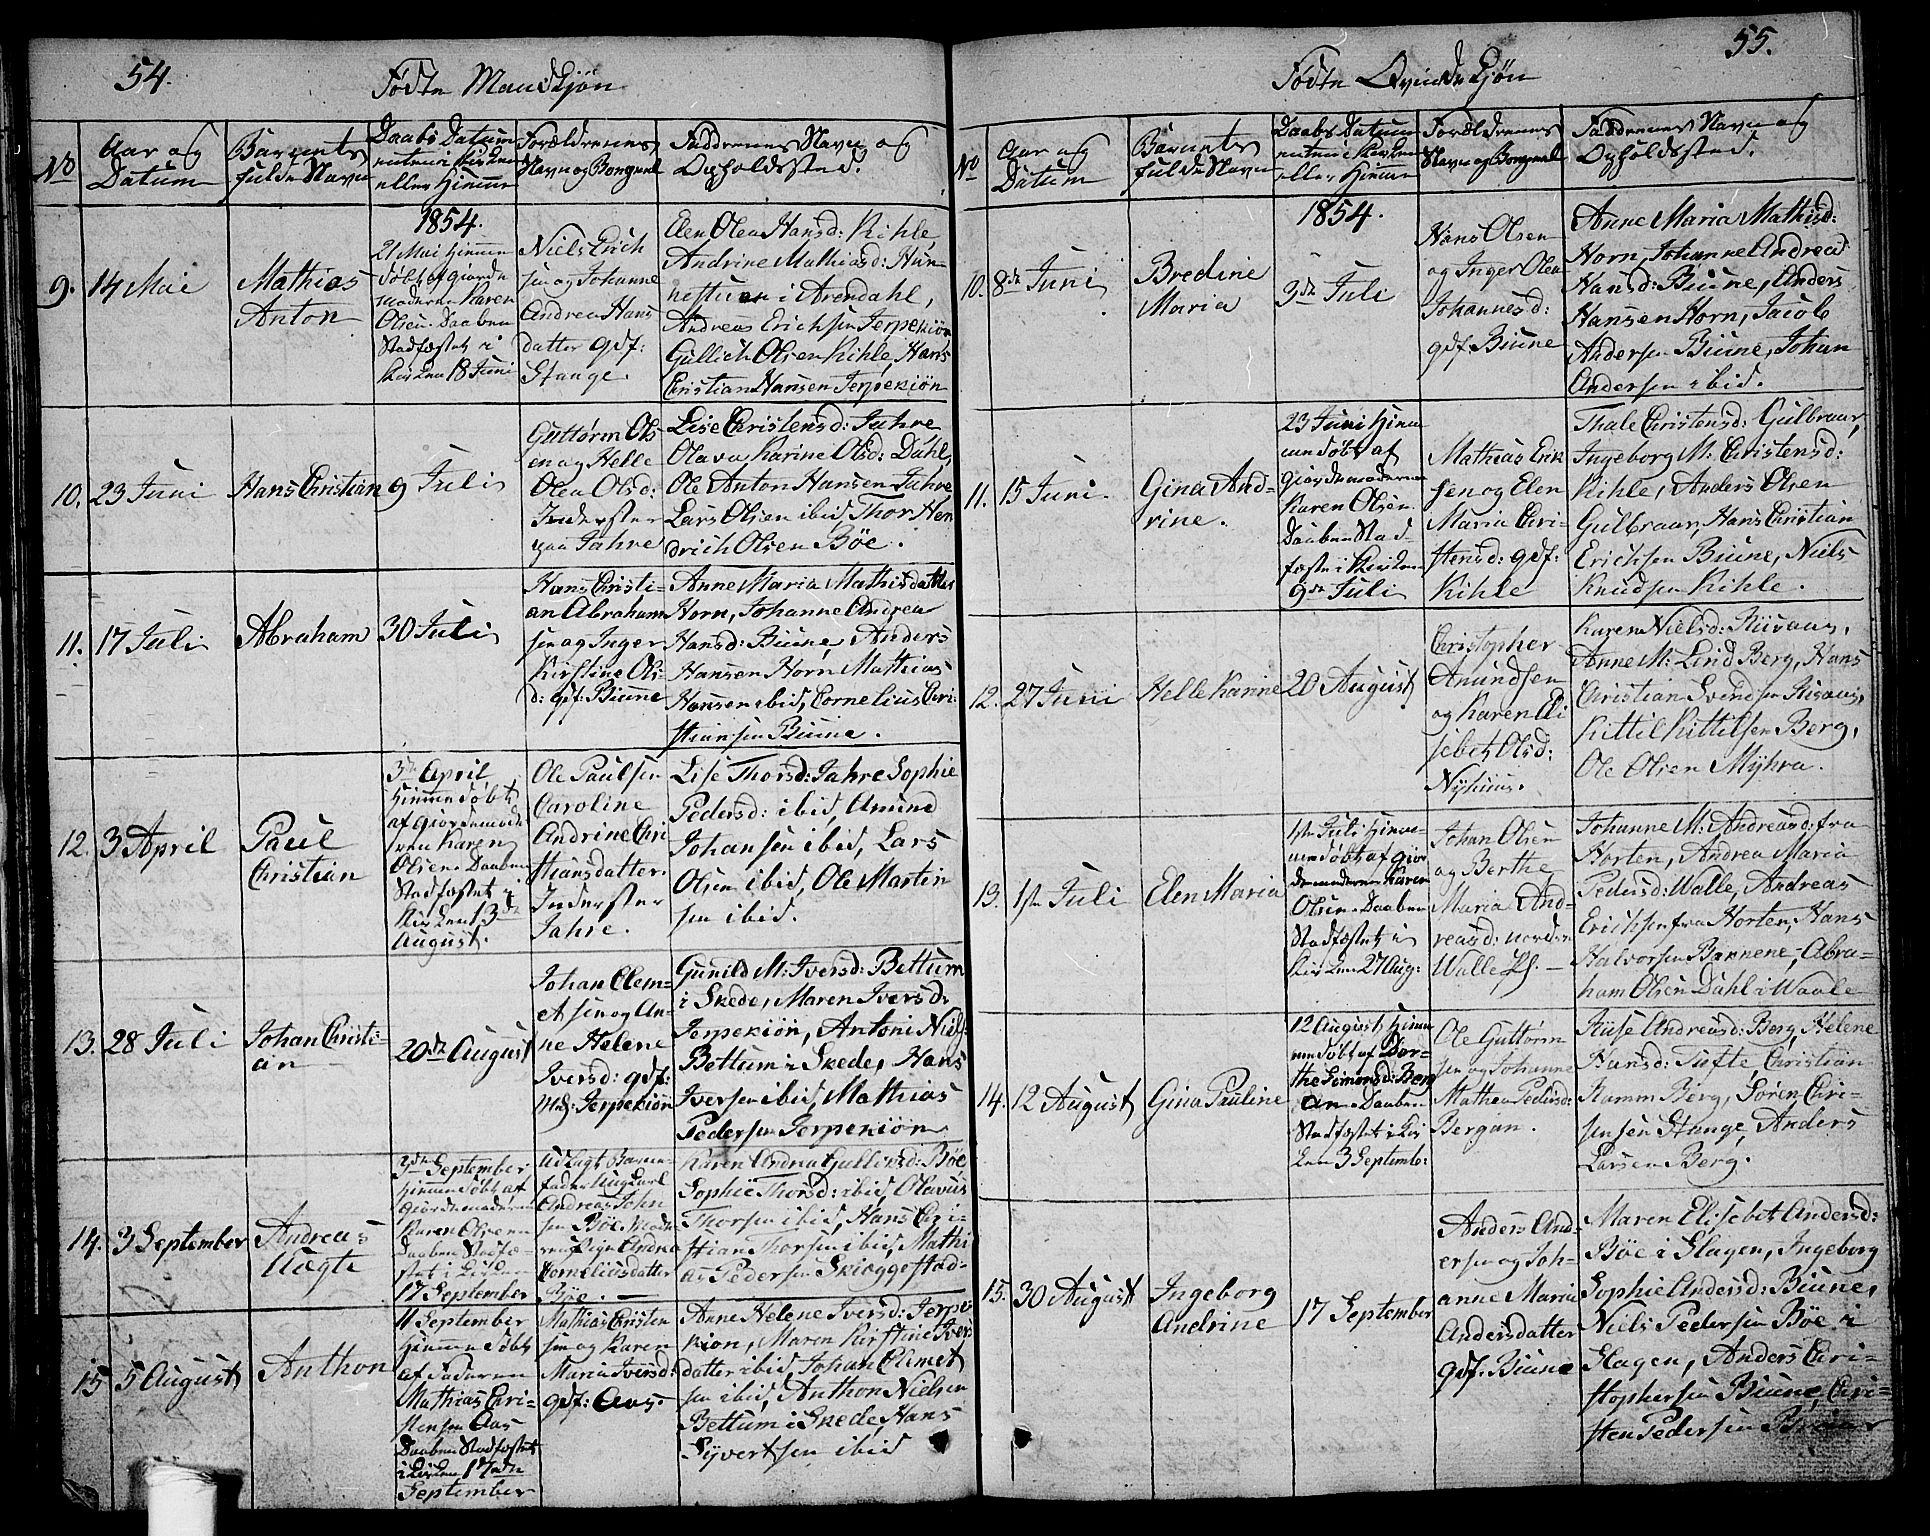 54.
Fødte Mandkjøn
No
Aar og
Datum
Barnets
fulde Navn
Daabs Datum
enten i Kirken
eller Hiemme
Forældrenes
Navn og Borgerel
Faddrenes Navn og
Opholdssted.
9.
14 Mai
Mathias
Anton
1854.
21 Mai Hiemme
døbt af giorde
moderen Karen
Olsen. Daaben
Stadfæstet i
Kirken 18 Juni
Niels Erich
sen og Johanne
Andrea Hans
datter gdf:
Stange.
Elen Olea Hansd: Kihle
Andrine Mathiasd: Hun
nestuen i Arendahl,
Andreas Erichsen Jerpekiøn
Gullich Olsen Kihle, Hans
Christian Hansen Jerpekiøn
10.
23 Juni
Hans Christian
9 Juli
Guttorm Ols
en og Helle
Olea Olsd:
Inderster
paa Jahre
Lise Christensd: Jahre
Olava Karine Olsd: Dahl,
Ole Anton Hansen Jahre
Lars Olsen ibid, Thor Hen
drich Olsen Bøe.
11.
17 Juli
Abraham
30 Juli
Hans Christi-
an Abraham
sen og Inger
Kirstine Ols
d: gdf: Biune
Anne Maria Mathisdatter
Horn, Johanne Andrea
Hansd: Biune, Anders
Hansen Horn Mathias
Hansen ibid, Cornelius Chri-
stiansen Biune.
12.
3 April
Paul
Christian
3de April
Hiemme døbt
af Giordemode
ren Karen
Olsen. Daaben
Stadfæstet i
Kirken 13de
August.
Ole Paulsen
Caroline
Andrine Chri
stiansdatter.
Inderster
Jahre.
Lise Thorsd: Jahre Sophie
Pedersd: ibid, Amund
Johansen ibid, Lars
Olsen ibid, Ole Martin
sen ibid.
13.
28 Juli
Johan Christi-
an
20de August
Johan Clem-
etsen og An-
ne Helene
Iversd: gdf:
Jerpekiøn
Gunild M: Iversd: Bettum
i Skede, Maren Iversd:
Jerpekiøn, Antoni Niels
Bettum i Skede, Hans
Iversen ibid, Mathias
Pedersen Jerpekiøn
14.
3 September
Andreas
Uægte
3de September
Hiemme døbt af
giordemoderen
Karen Olsen
Daaben Stadfæ-
stet i Kirken
17 September
Udlagt Barne
fader Ung Carl
Andreas John
sen Bøe. Mode
ren Pige Andrea
Corneliusdatter
Bøe.
Karen Andrea Gulliksd: Bøe
Sophie Thorsd: ibid, Olavus
Thorsen ibid, Hans Chri-
stian Thorsen ibid, Mathi
as Pedersen Skiaggestad-
15
5 August
Anthon
11 September
Hiemme døbt
af Faderen
Mathias Chri-
stensen Aas
Daaben Stadfæstet
i Kirken 17de
September
Mathias Christen
sen og Karen
Maria Iversd:
gdf: Aas.
Anne Helene Iversd: Jerpe
kiøn, Maren Kirstine Ivers
datter ibid, Johan Clemet
sen ibid, Anthon Nielsen
Bettum i Skede, Hans
Syvertsen ibid
55.
Fødte Qvindekjøn
No
Aar og
Datum
Barnets
fulde Navn
Daabs Datum
enten i Kirken
eller Hiemme
Forældrenes
Navn og Borgerel
Faddrenes Navn og
Opholdssted.
10.
8de Juni
Bredine
Maria
1854.
3de Juli
Hans Olsen
og Inger Olea
Johannesd:
gdf. Biune
Anne Maria Mathisd:
Horn, Johanne Andrea
Hansd: Biune, Anders
Hansen Horn, Jacob
Andersen Biune, Johan
Andersen ibid.
11.
15 Juni.
Gina And-
rine.
23 Juni Hiem
me døbt af
giordemoderen
Karen Olsen.
Daaben Stad-
fæste i Kirken
9de Juli
Mathias Erik
sen og Elen
Maria Chri-
stensd: gdf:
Kihle
Thale Christensd: Gulbraar,
Ingeborg M: Christensd:
Kihle, Anders Olsen
Gulbraar, Hans Christian
Erichsen Biune, Niels
Knudsen Kihle.
12.
27 Juni
Helle Karine
20 August
Christopher
Amundsen
og Karen Eli
sebet Olsd:
Nyhuus.
Karen Nielsd: Riisaas,
Anne M: Lind Berg, Hans
Christian Svendsen Risaas,
Kittil Kittilsen Berg,
Ole Olsen Myhra.
13.
1ste Juli
Elen Maria
1ste Juli Hiem-
me døbt af gior
demoderen Karen
Olsen. Daaben
Stadfæstet i
Kirken 27 Aug:
Johan Olsen
og Berthe
Maria And-
reasd: nordre
Walle
Johanne M: Andreasd: fra
Horten, Andrea Maria
Pedersd: Walle, Andreas
Erichsen fra Horten, Hans
Halvorsen Bannene, Abra-
ham Olsen Dahl i Waale
14.
12 August
Gina Pauline
12 August Hiem
me døbt af Dor-
the Simonsd: Berg
an. Daaben
Stadfæstet i Kir
ken 3 Septemb:
Ole Guttorm
sen og Johanne
Mathea Pedersd:
Bergan.
Anse Andreasd: Berg, Helene
Hansd: Tufte, Christian
Ramm Berg, Søren Chri-
sensen Stange, Anders
Larsen Berg.
15.
30 August
Ingeborg
Andrine
17 September
Anders And
ersen og Joh-
anne Maria
Andersdatter
gdf. Biune
Maren Elisebet Andersd:
Bøe i Slagen, Ingeborg
Sophie Andersd: Biune,
Niels Pedersen Bøe i
Slagen, Anders Chri-
stophersen Biune, Chri-
sten Pedersen